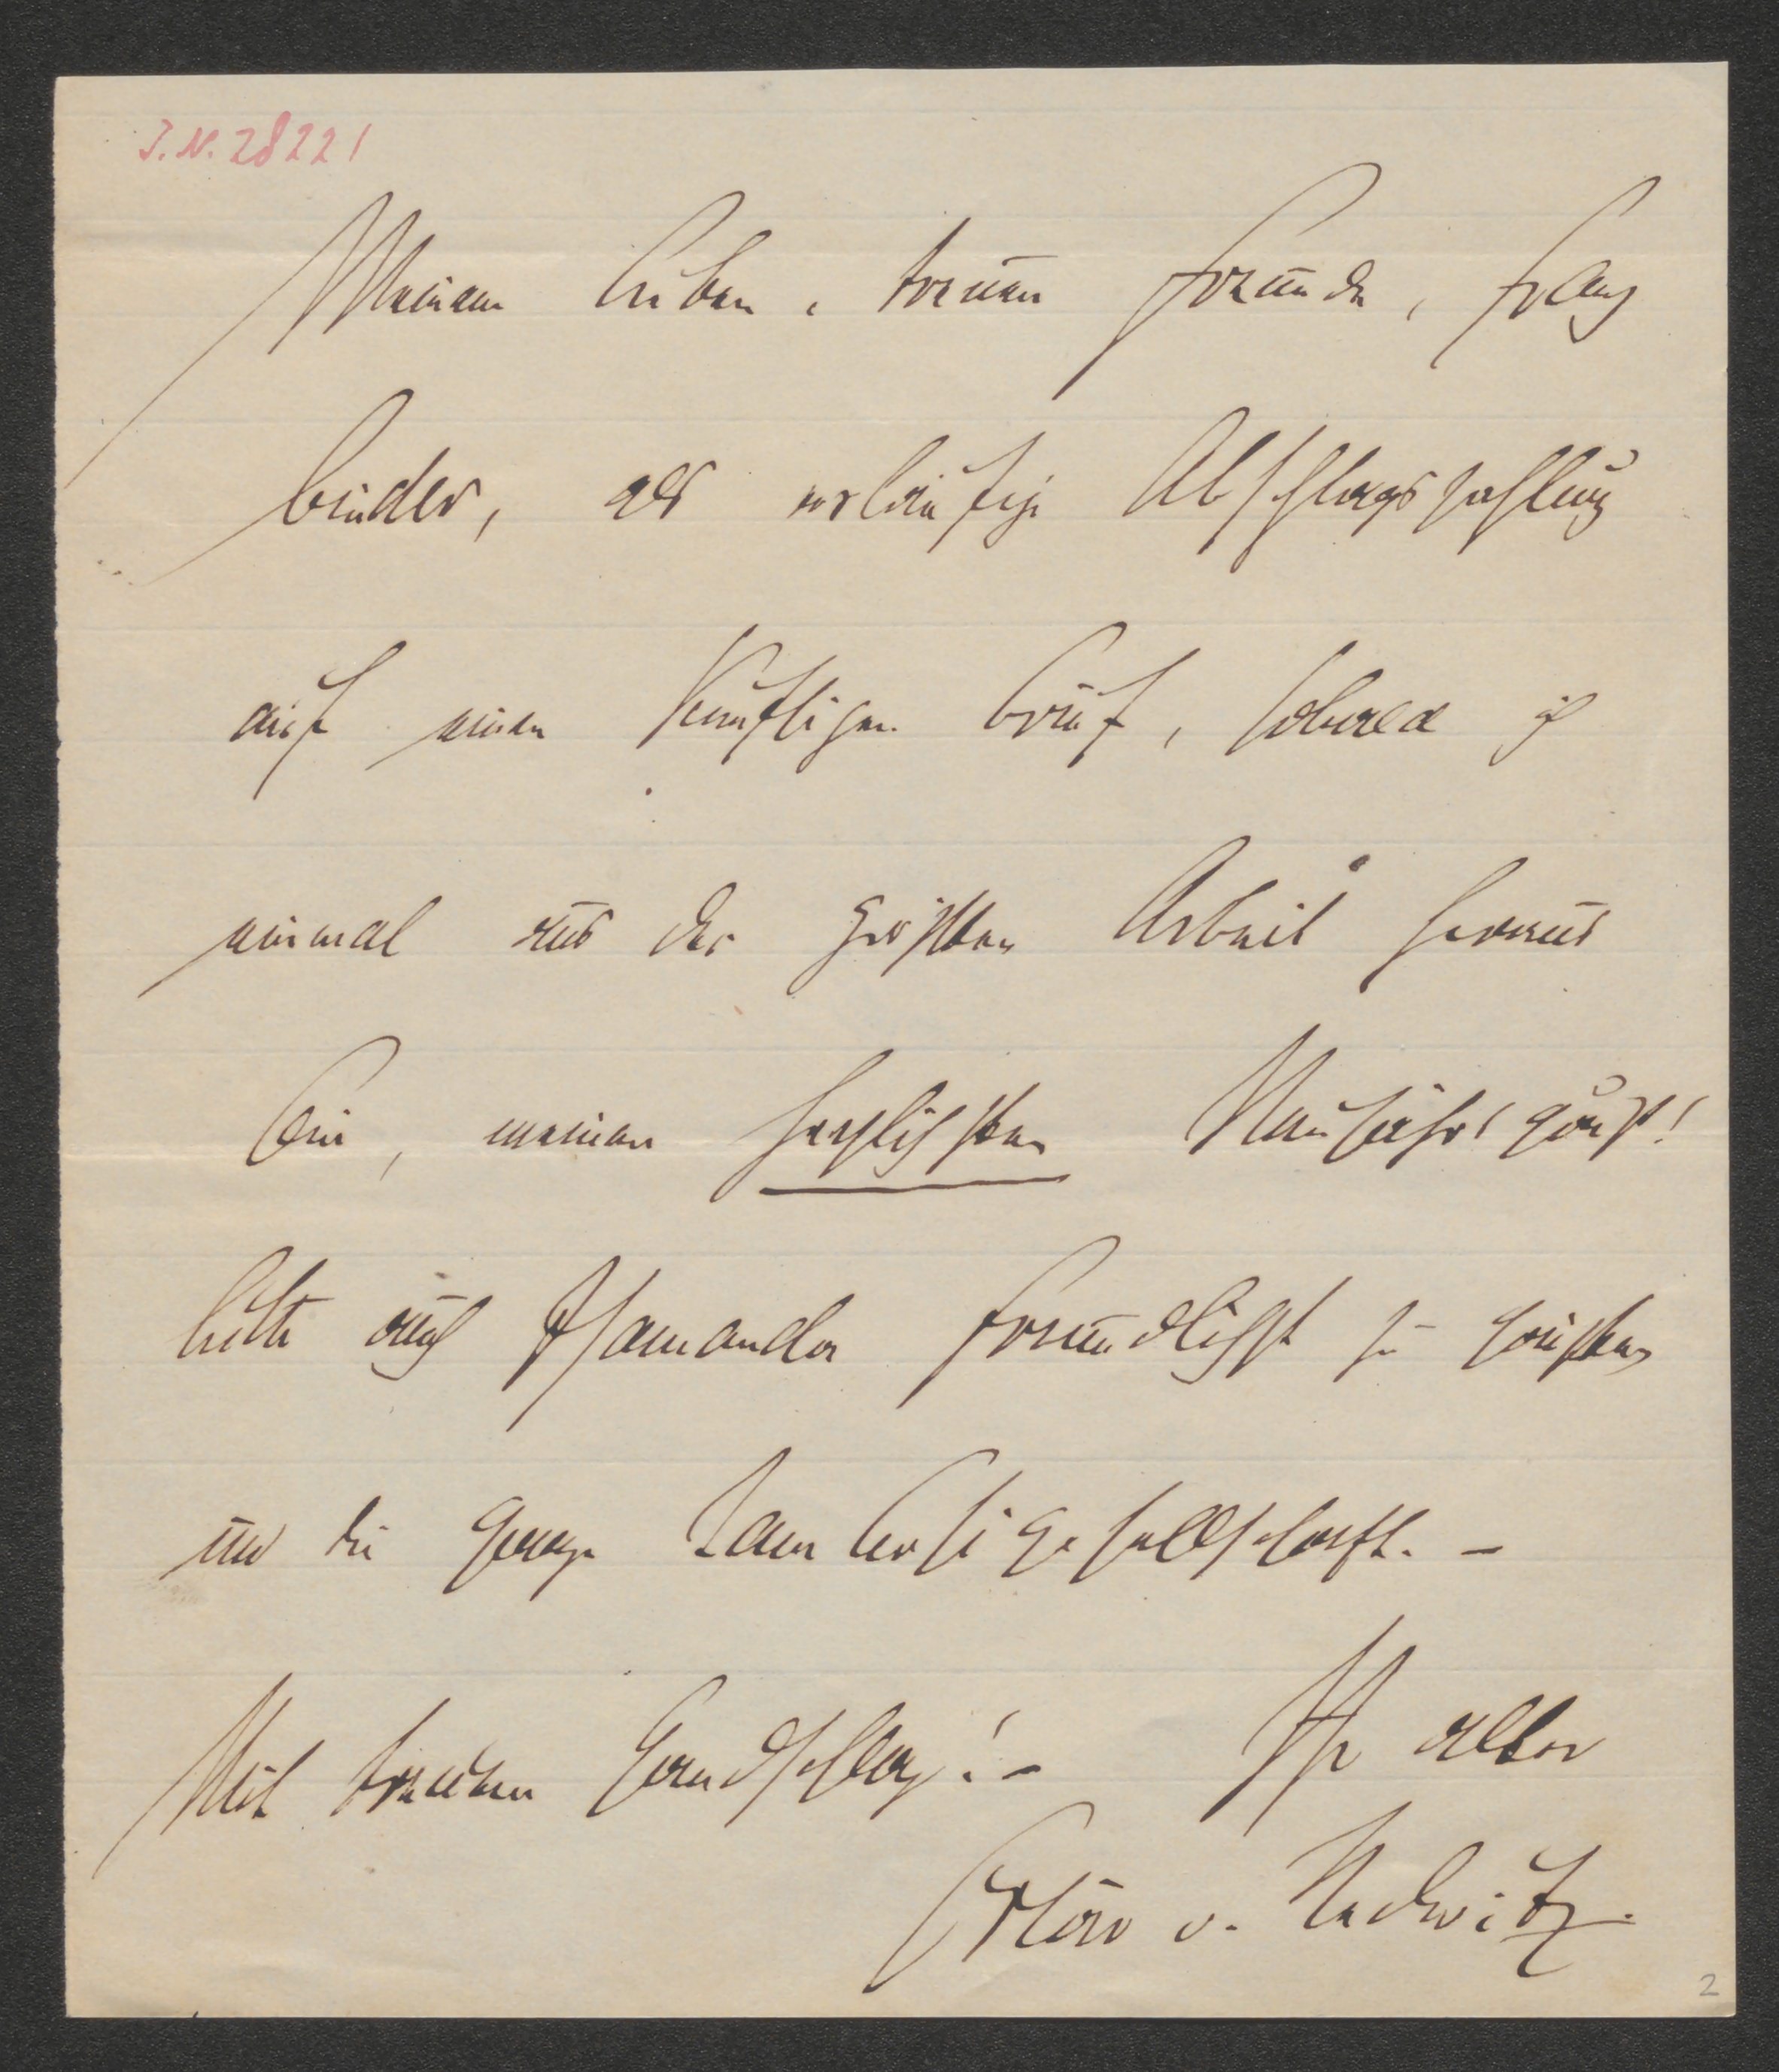 I.N. 28221
Meinem lieben, treuen Freunde, Franz
Binder, als vorläufige Abschlagszahlung
auf einen künftigen Brief, sobald ich
einmal aus der größten Arbeit heraus
bin, meinen herzlichsten Neujahrsgruß!
bitte auch freundlichst zu grüßen,
und die ganze Gesellschaft. –
Mit treuem Handschlag! – Ihr alter
Oskar v. Redwitz.
2